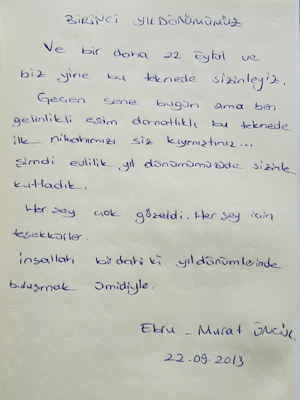 BİRİNCİ YILDÖNÜMÜMÜZ
Ve bir daha 22 Eylül ve
biz yine bu teknede sizinleyiz.
Geçen sene bugün ama ben
gelinlikli eşim damatlıklı bu teknede
ilk nikahımızı siz kıymıştınız...
şimdi evlilik yıl dönümümüzüde sizinle
kutladık.
Her şey çok güzeldi. Her şey için
teşekkürler.
inşallah bir dahi ki yıldönümlerinde
buluşmak ümidiyle.
Ebru - Murat ÖNCÜL
22.09.2013